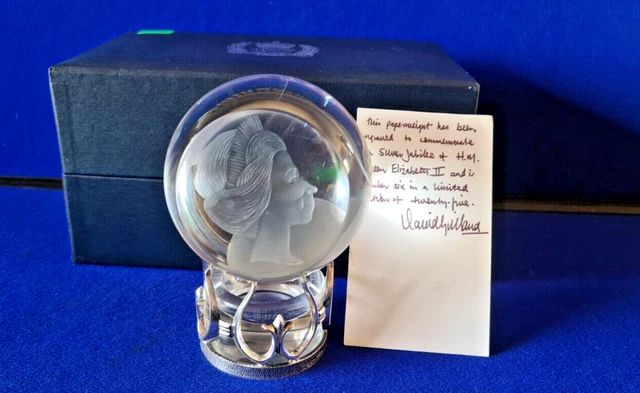 this paperweight has been
to commemorate
Silver Jubilee of H.M.
Elizabeth II and is
six in a limited
of twenty-five.